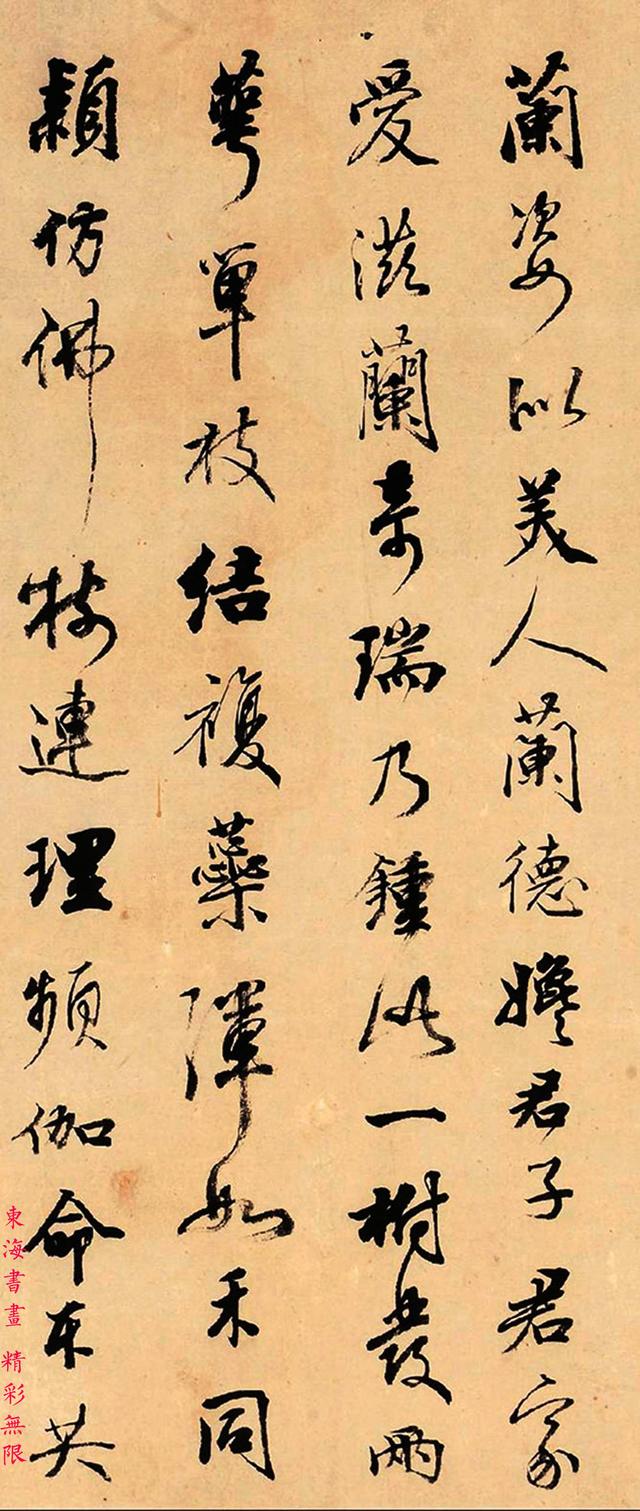 蘭姿似美人蘭德君子君家
愛滋蘭奇瑞乃鍾此一樹發兩
萼單枝結複蘂渾如禾同
穎仿佛枝連理頻伽命本共
東海書畫 精彩無限